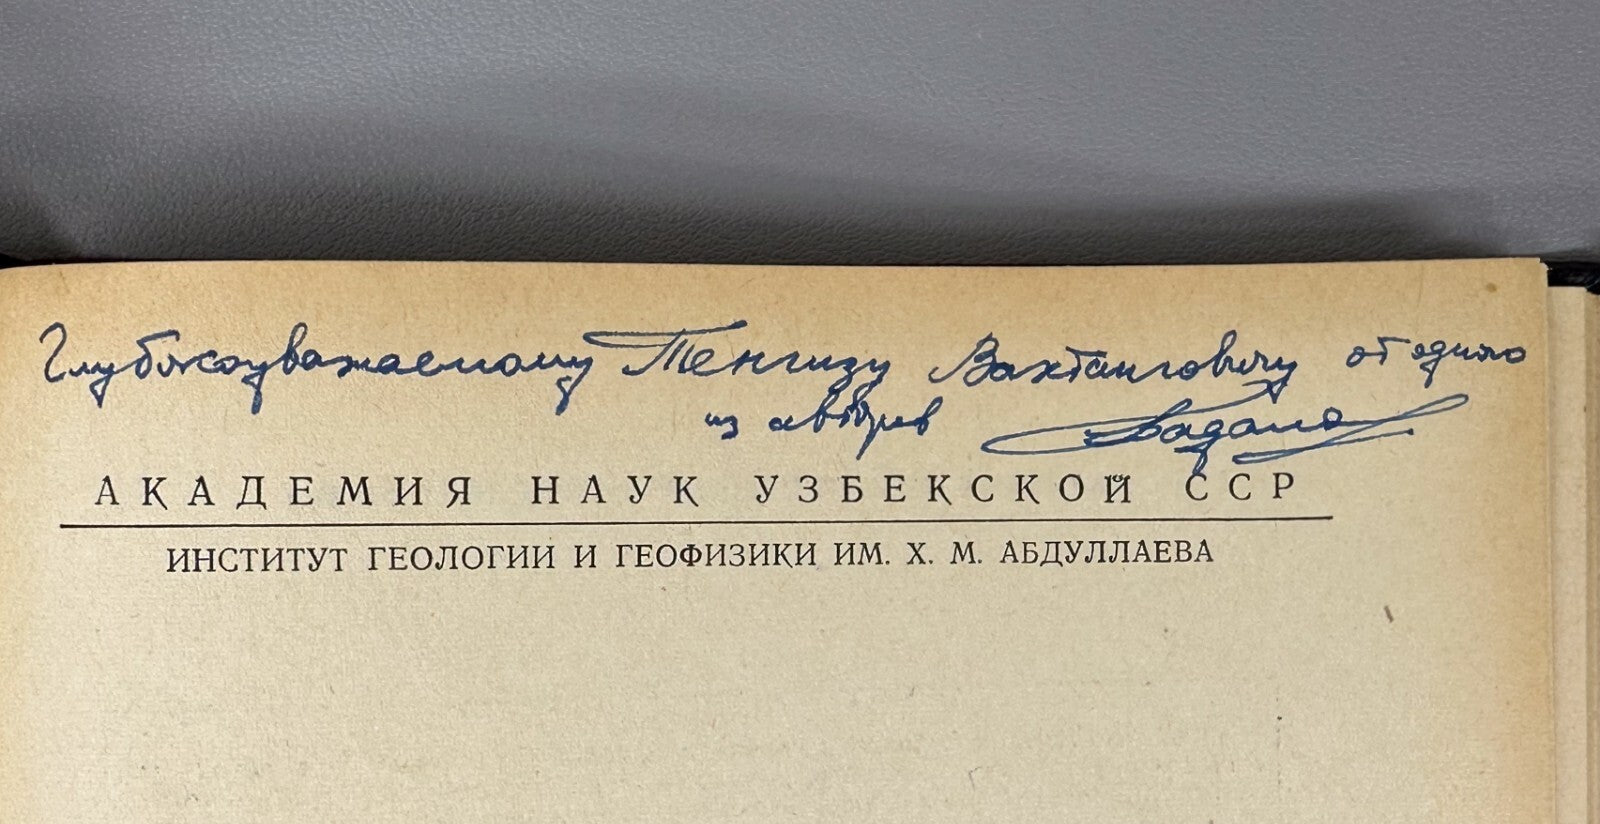 Глубокоуважаемому Тенгизу Вахтанговичу от одного
из авторов
АКАДЕМИЯ НАУК УЗБЕКСКОЙ ССР
ИНСТИТУТ ГЕОЛОГИИ И ГЕОФИЗИКИ ИМ. Х. М. АБДУЛЛАЕВА